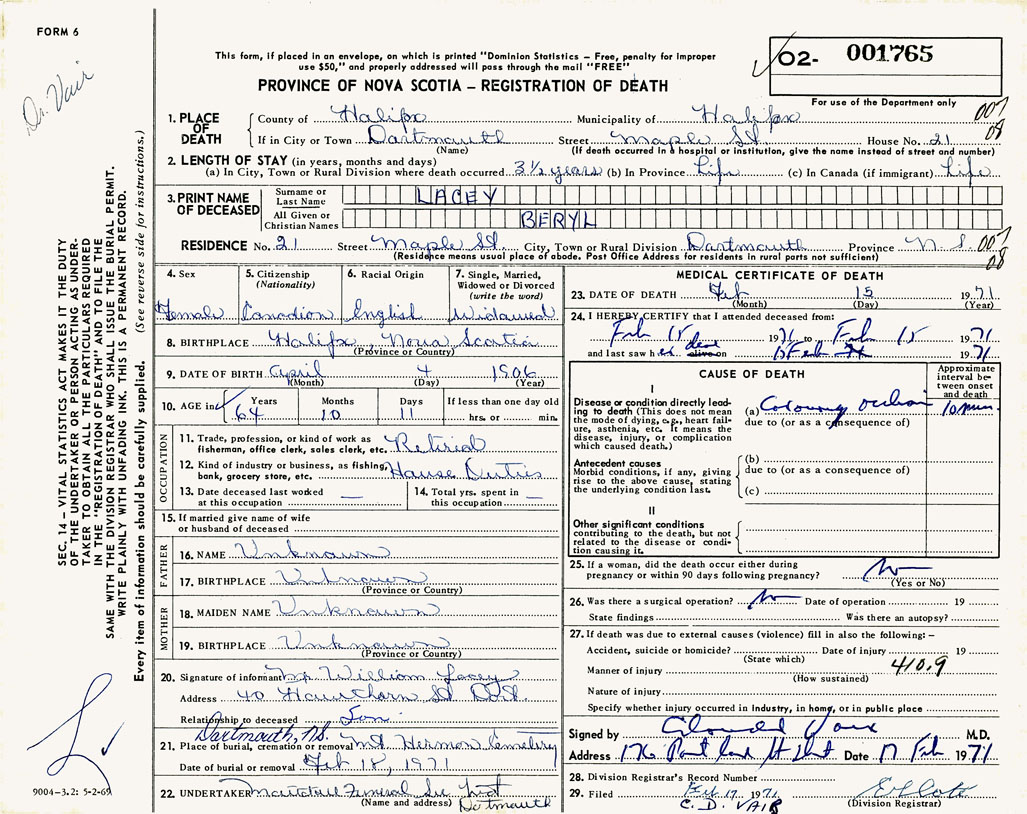 FORM 6
Dr. Vair
This form, if placed in an envelope, on which is printed "Dominion Statistics – Free, penalty for improper
use $50," and properly addressed will pass through the mail "FREE"
O2- 001765
PROVINCE OF NOVA SCOTIA – REGISTRATION OF DEATH
For use of the Department only
1. PLACE OF DEATH County of Halifax Municipality of Halifax 007
If in City or Town Dartmouth Street Maple St House No. 21 08
(Name) (If death occurred in a hospital or institution, give the name instead of street and number)
2. LENGTH OF STAY (in years, months and days)
(a) In City, Town or Rural Division where death occurred 3½ years (b) In Province Life (c) In Canada (if immigrant) Life
3. PRINT NAME OF DECEASED Surname or Last Name LACEY
All Given or Christian Names BERYL
RESIDENCE No. 21 Street Maple St City, Town or Rural Division Dartmouth Province N S 007
(Residence means usual place of abode. Post Office Address for residents in rural parts not sufficient) 08
4. Sex Female
5. Citizenship (Nationality) Canadian
6. Racial Origin English
7. Single, Married, Widowed or Divorced (write the word) Widowed
8. BIRTHPLACE Halifax, Nova Scotia
(Province or Country)
9. DATE OF BIRTH April 4 1906
(Month) (Day) (Year)
10. AGE in Years 64 Months 10 Days 11 If less than one day old hrs. or min.
OCCUPATION
11. Trade, profession, or kind of work as
fisherman, office clerk, sales clerk, etc. Retired
12. Kind of industry or business, as fishing,
bank, grocery store, etc. House Duties
13. Date deceased last worked
at this occupation —
14. Total yrs. spent in
this occupation —
15. If married give name of wife
or husband of deceased
FATHER
16. NAME Unknown
17. BIRTHPLACE Unknown
(Province or Country)
MOTHER
18. MAIDEN NAME Unknown
19. BIRTHPLACE Unknown
(Province or Country)
20. Signature of informant Mr William Lacey
Address 40 Hawthorn St Dart.
Relationship to deceased Son
Dartmouth, N.S.
21. Place of burial, cremation or removal Mt Hermon Cemetery
Date of burial or removal Feb 18, 1971
22. UNDERTAKER Funeral
(Name and address) Dartmouth
MEDICAL CERTIFICATE OF DEATH
23. DATE OF DEATH Feb 15 1971
(Month) (Day) (Year)
24. I HEREBY CERTIFY that I attended deceased from:
Feb 15 1971 to Feb 15 1971
and last saw her dead alive on 15 Feb 1971
CAUSE OF DEATH
Approximate interval between onset and death
I
Disease or condition directly leading to death (This does not mean the mode of dying, e.g., heart failure, asthenia, etc. It means the disease, injury, or complication which caused death.)
(a) Coronary occlusion 10 min.
due to (or as a consequence of)
Antecedent causes
Morbid conditions, if any, giving rise to the above cause, stating the underlying condition last.
(b)
due to (or as a consequence of)
(c)
II
Other significant conditions
contributing to the death, but not related to the disease or condition causing it.
25. If a woman, did the death occur either during
pregnancy or within 90 days following pregnancy? No
(Yes or No)
26. Was there a surgical operation? No Date of operation 19
State findings Was there an autopsy?
27. If death was due to external causes (violence) fill in also the following: –
Accident, suicide or homicide? Date of injury 19
(State which)
Manner of injury 410.9
(How sustained)
Nature of injury
Specify whether injury occurred in industry, in home, or in public place
Signed by Vair M.D.
Address 176 Portland St Dart Date 17 Feb 1971
28. Division Registrar's Record Number
29. Filed Feb. 17 1971
C. D. VAIR (Division Registrar)
SEC. 14 – VITAL STATISTICS ACT MAKES IT THE DUTY
OF THE UNDERTAKER OR PERSON ACTING AS UNDER-
TAKER TO OBTAIN ALL THE PARTICULARS REQUIRED
IN THE "REGISTRATION OF DEATH" AND TO FILE THE
SAME WITH THE DIVISION REGISTRAR WHO SHALL ISSUE THE BURIAL PERMIT.
WRITE PLAINLY WITH UNFADING INK. THIS IS A PERMANENT RECORD.
Every item of information should be carefully supplied. (See reverse side for instructions.)
9004-3.2: 5-2-69